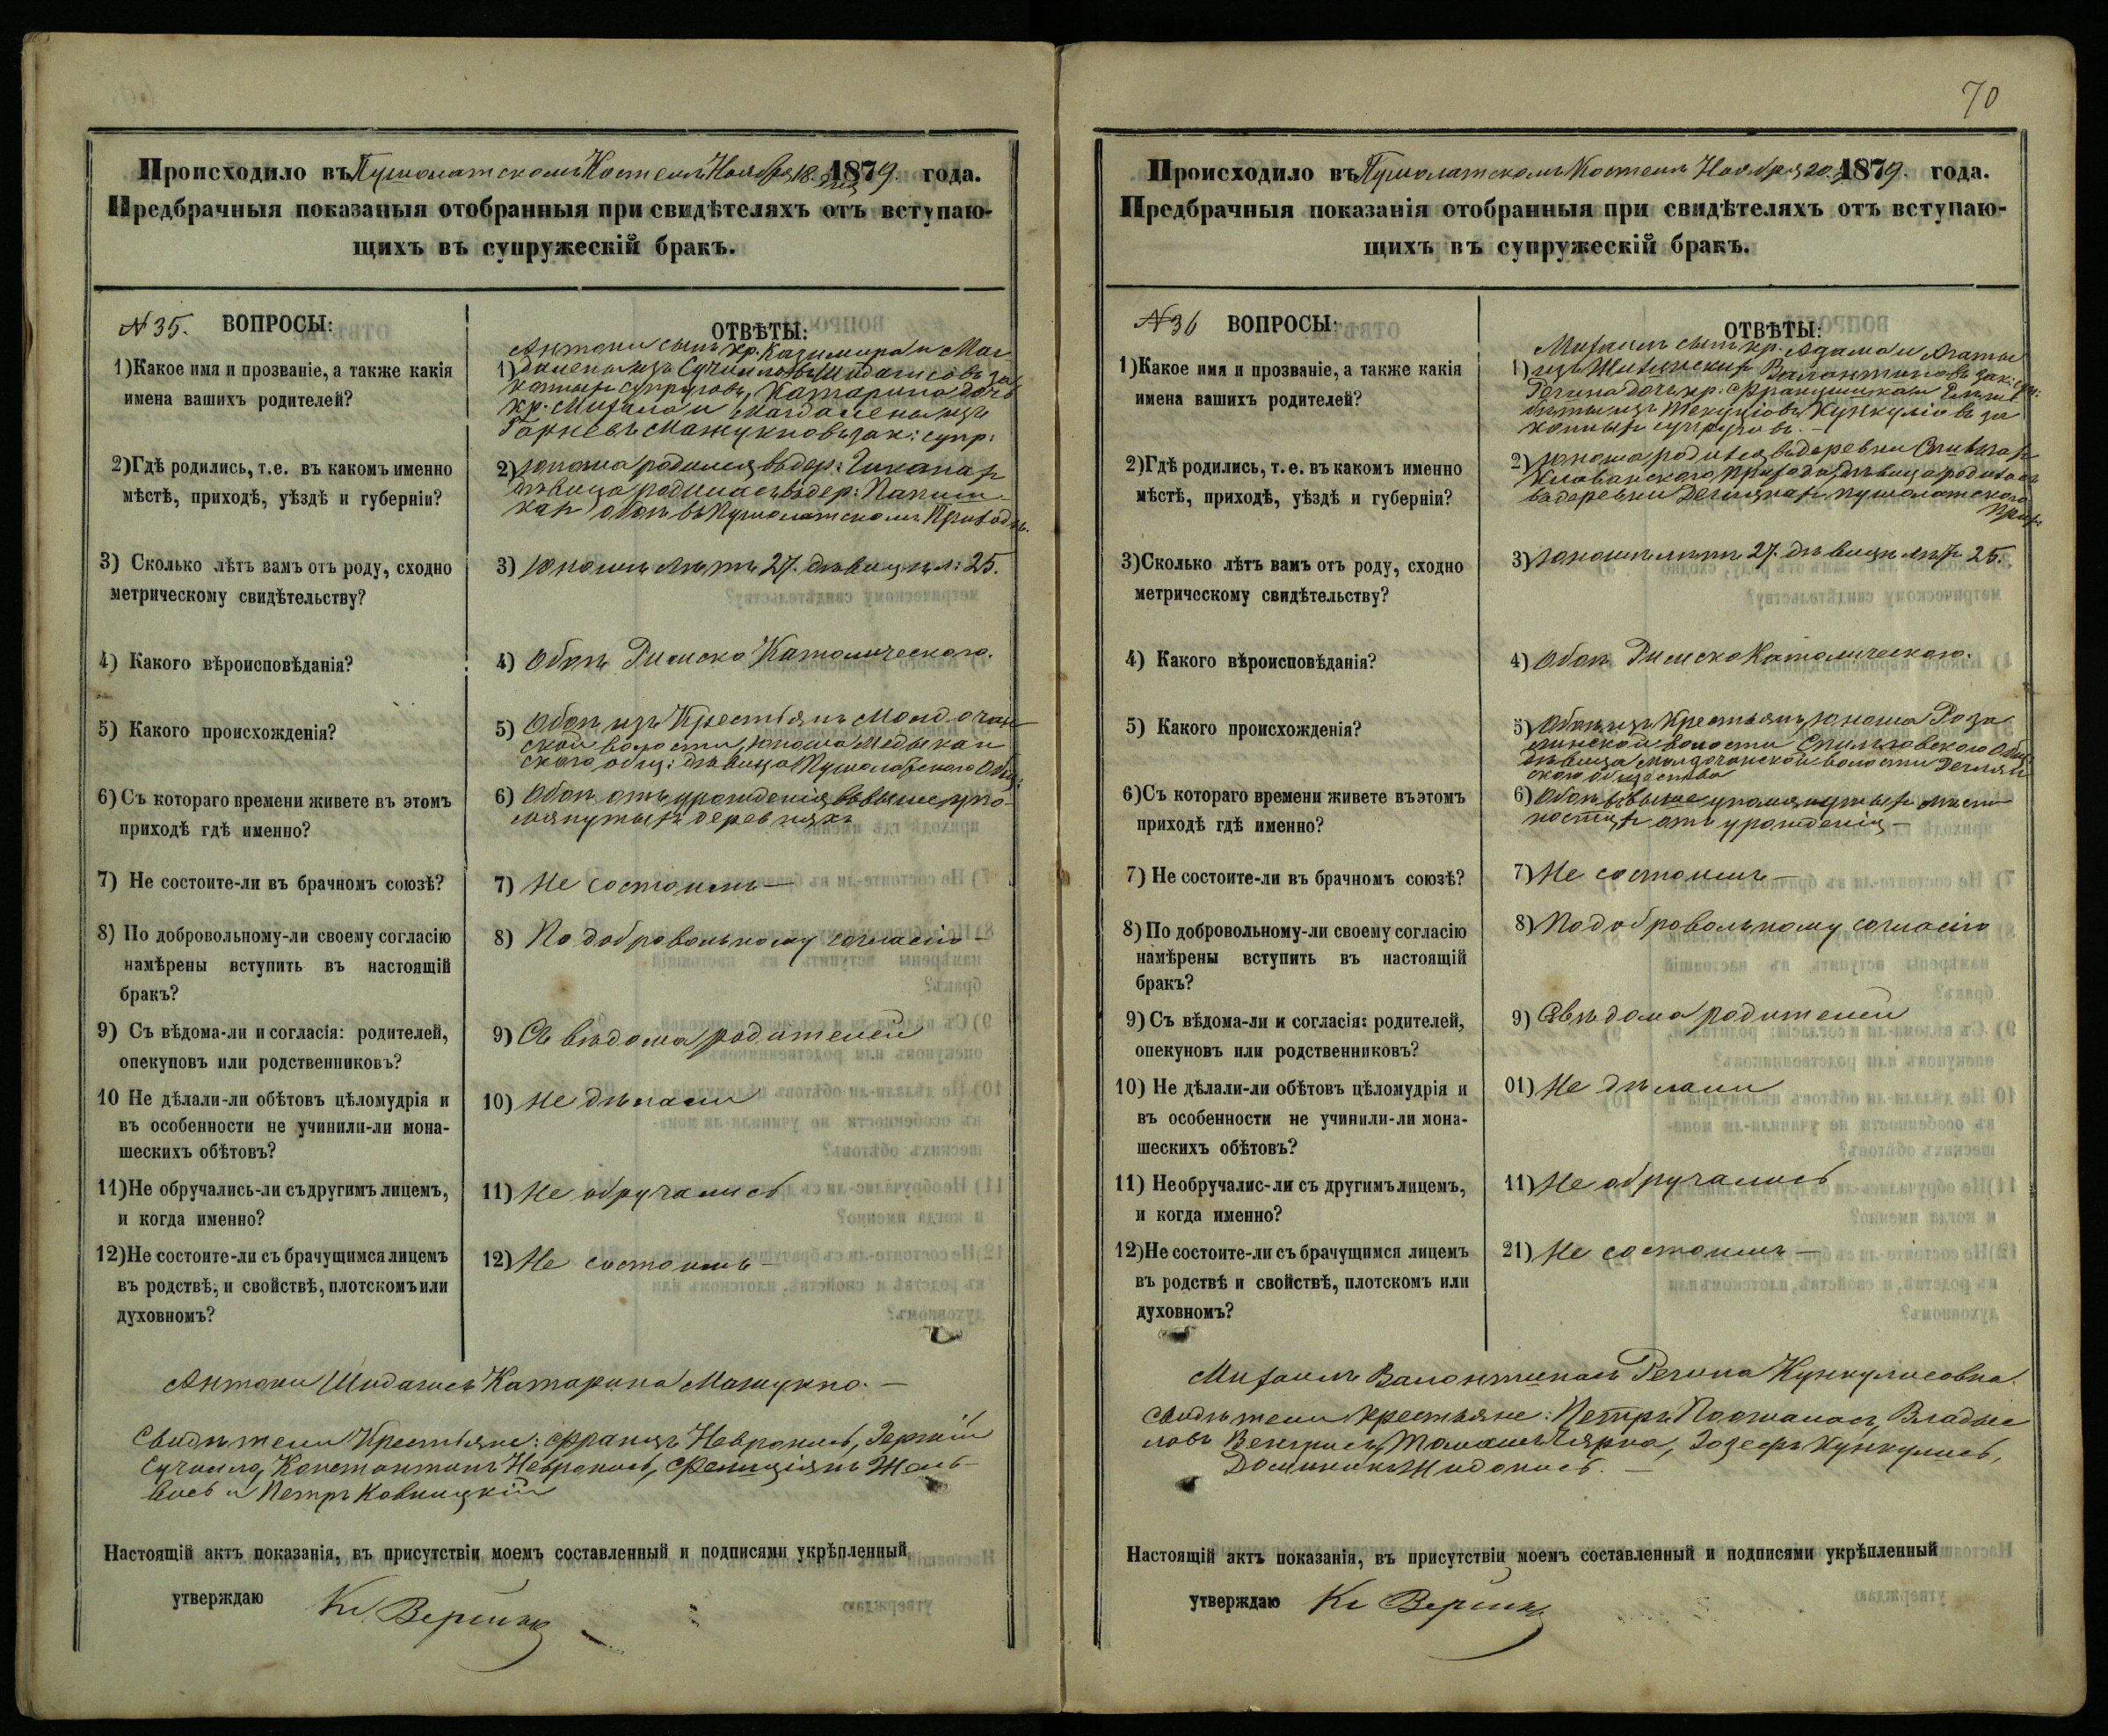 Происходило въ Пушолатскомъ Костелѣ Ноября 18. дня 1879. года.
Предбрачныя показаныя отобранныя при свидѣтеляхъ отъ вступаю-
щихъ въ супружескій бракъ.
№ 35. ВОПРОСЫ:
1) Какое имя и прозваніе, а также какія
имена вашихъ родителей?
2) Гдѣ родились, т.е. въ какомъ именно
мѣстѣ, приходѣ, уѣздѣ и губерніи?
3) Сколько лѣтъ вамъ отъ роду, сходно
метрическому свидѣтельству?
4) Какого вѣроисповѣданія?
5) Какого происхожденія?
6) Съ котораго времени живете въ этомъ
приходѣ гдѣ именно?
7) Не состоите-ли въ брачномъ союзѣ?
8) По добровольному-ли своему согласію
намѣрены вступить въ настоящій
бракъ?
9) Съ вѣдома-ли и согласія: родителей,
опекуповъ или родственниковъ?
10 Не дѣлали-ли обѣтовъ цѣломудрія и
въ особенности не учинили-ли мона-
шескихъ обѣтовъ?
11) Не обручались-ли съ другимъ лицемъ,
и когда именно?
12) Не состоите-ли съ брачущимся лицемъ
въ родствѣ, и свойствѣ, плотскомъ или
духовномъ?
ОТВѢТЫ:
Антони сынъ кр. Казимира и Маг
1) далены изъ Сучиловъ Шидагисовъ за
конныхъ супруговъ, Катарина дочь
кр. Михаила и Магдалены изъ
супр:
2) юноша родился въ дер:
дѣвица родилась въ дер:
обоѣ въ Пушолатскомъ Приходѣ.
3) Юношѣ лѣтъ 27. дѣвицѣ л: 25.
4) Обоѣ Римско Католическаго.
5) Обоѣ изъ Крестьянъ Молдочан
ской волости, юноша
скаго общ: дѣвица Пушолатскаго Общ:
6) Обоѣ отъ урожденія въ вышеупо-
мянутыхъ деревняхъ
7) Не состоимъ —
8) По добровольному согласію —
9) Съ вѣдома родителей
10) Не дѣлали
11) Не обручались
12) Не состоимъ —
Антони Шидагисъ Катарина Мажукно. —
Свидѣтели Крестьяне: Францъ Невронисъ,
Сучило, Константинъ Невронисъ,
и Петръ Ковницкій
Настоящій актъ показанія, въ присутствіи моемъ составленный и подписями укрѣпленный
утверждаю Кс.
70
Происходило въ Пушолатскомъ Костелѣ Ноября 20. 1879. года.
Предбрачныя показанія отобранныя при свидѣтеляхъ отъ вступаю-
щихъ въ супружескій бракъ.
№ 36 ВОПРОСЫ:
1) Какое имя и прозваніе, а также какія
имена вашихъ родителей?
2) Гдѣ родились, т. е. въ какомъ именно
мѣстѣ, приходѣ, уѣздѣ и губерніи?
3) Сколько лѣтъ вамъ отъ роду, сходно
метрическому свидѣтельству?
4) Какого вѣроисповѣданія?
5) Какого происхожденія?
6) Съ котораго времени живете въ этомъ
приходѣ гдѣ именно?
7) Не состоите-ли въ брачномъ союзѣ?
8) По добровольному-ли своему согласію
намѣрены вступить въ настоящій
бракъ?
9) Съ вѣдома-ли и согласія: родителей,
опекуновъ или родственниковъ?
10) Не дѣлали-ли обѣтовъ цѣломудрія и
въ особенности не учинили-ли мона-
шескихъ обѣтовъ?
11) Не обручалис-ли съ другимъ лицемъ,
и когда именно?
12) Не состоите-ли съ брачущимся лицемъ
въ родствѣ и свойствѣ, плотскомъ или
духовномъ?
ОТВѢТЫ:
Михаилъ сынъ кр. Адама и Агаты
1) изъ зак: супр:
Регина дочь кр: Франциска и Ельжб
Кункулисовъ за
конныхъ супруговъ. —
2) юноша родился въ деревни
прихода, дѣвица родилась
въ деревни Пушолатскаго
прих:
3) юношѣ лѣтъ 27. дѣвицѣ лѣтъ 25.
4) Обоѣ Римско Католическаго.
5) Обоѣ изъ Крестьянъ юноша Роза
линской волости Общ:
дѣвица Молдочанской волости
скаго общества
6) Обоѣ въ вышеупомянутыхъ мѣст
ностяхъ отъ урожденія —
7) Не состоимъ —
8) По добровольному согласію
9) Съ вѣдома родителей
01) Не дѣлали
11) Не обручались
21) Не состоимъ —
Михаилъ Валонтинасъ Регина Кункулисовна.
Свидѣтели крестьяне: Петръ Владис
лавъ Іозефъ Кункулисъ,
Доминикъ
Настоящій актъ показанія, въ присутствіи моемъ составленный и подписями укрѣпленный
утверждаю Кс